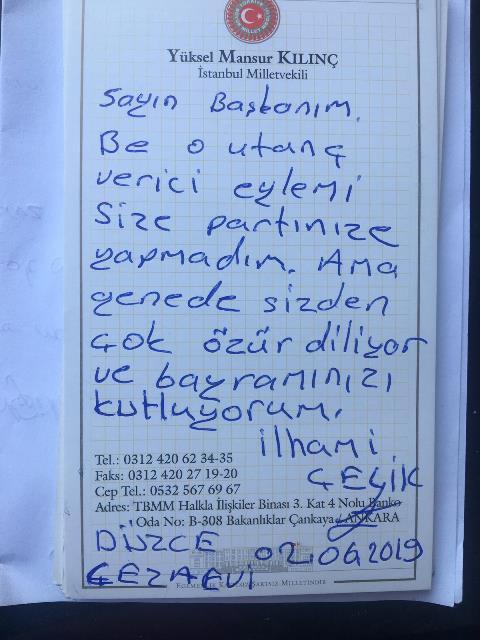 Yüksel Mansur KILINÇ
İstanbul Milletvekili
Sayın Başkanım.
Be o utanç
verici eylemi
Size partinize
yapmadım. Ama
genede sizden
çok özür diliyor
ve bayramınızı
kutluyorum.
İlhami
ÇEYİK
Tel.: 0312 420 62 34-35
Faks: 0312 420 27 19-20
Cep Tel.: 0532 567 69 67
Adres: TBMM Halkla İlişkiler Binası 3. Kat 4 Nolu Banko
Oda No: B-308 Bakanlıklar Çankaya / ANKARA
DÜZCE 02.06.2019
CEZAEVİ
EGEMENLİK KAYITSIZ ŞARTSIZ MİLLETİNDİR